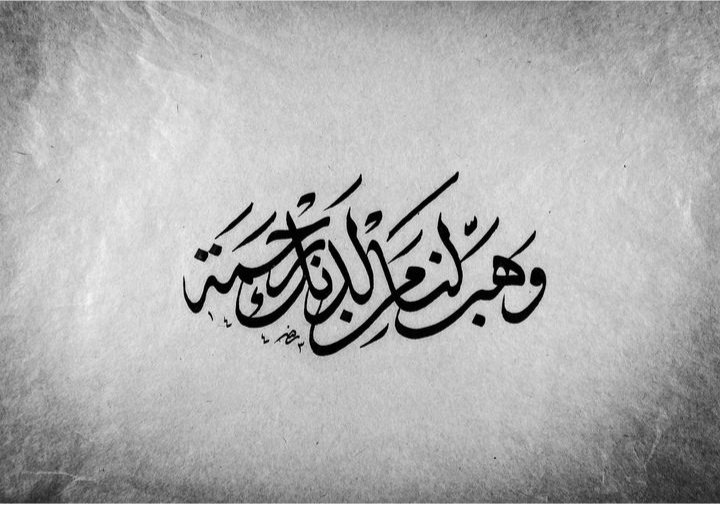 وهب لنا من لدنك رحمة